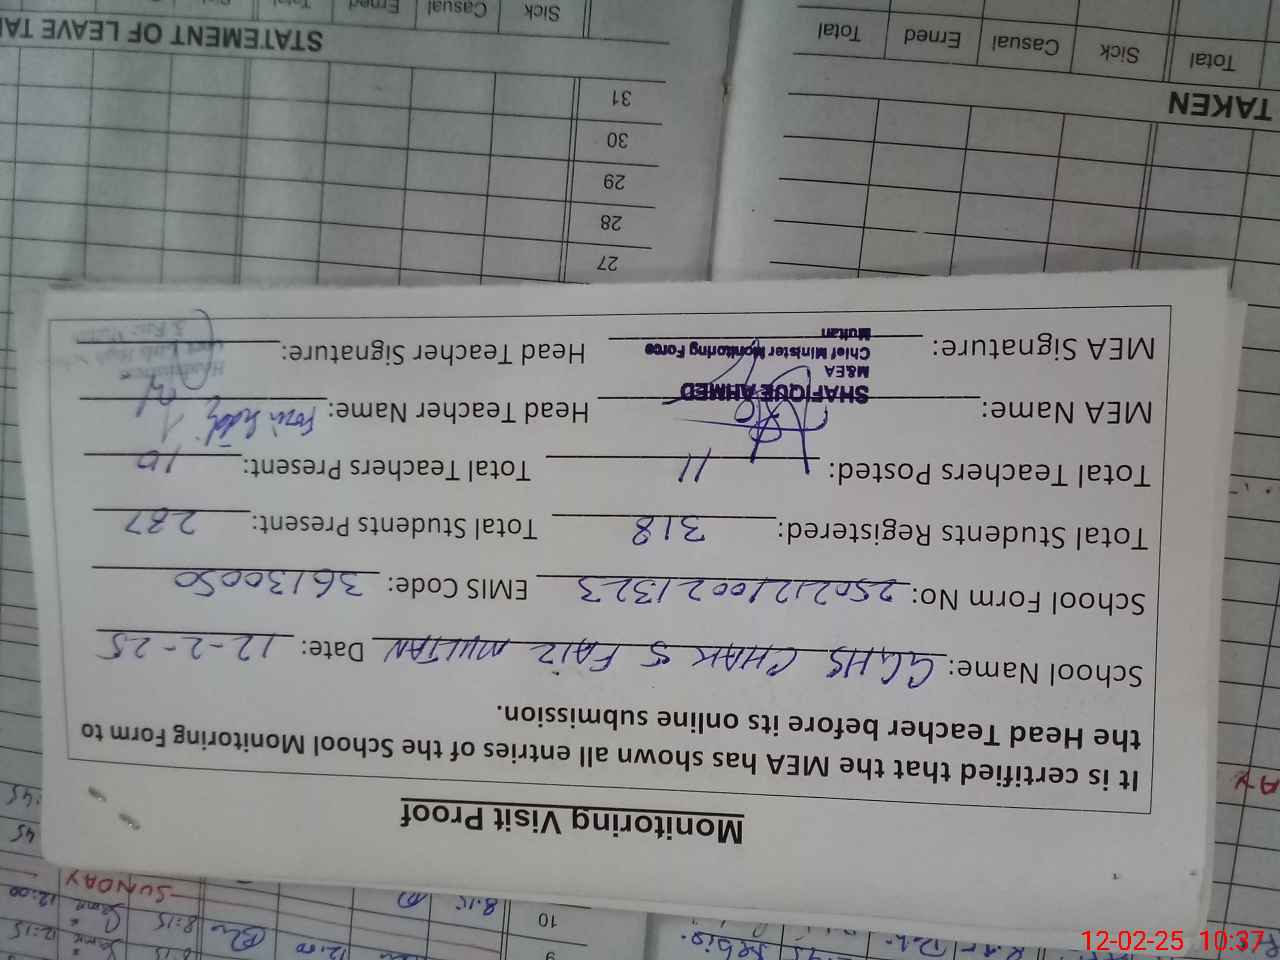 Monitoring Visit Proof
It is certified that the MEA has shown all entries of the School Monitoring Form to
the Head Teacher before its online submission.
School Name: GGHS CHAK 5 FAIZ MULTAN Date: 12-2-25
School Form No: 25021210021323 EMIS Code: 36130050
Total Students Registered: 318 Total Students Present: 287
Total Teachers Posted: 11 Total Teachers Present: 10
MEA Name: SHAFIQUE AHMED Head Teacher Name:
M&EA
Chief Minister Monitoring Force
Multan
MEA Signature: Head Teacher Signature:
9
10
8:15
12:00
8:15
12:00
12:15
SUNDAY
45
:45
27
28
29
30
31
STATEMENT OF LEAVE TA
TAKEN
Sick Casual Erned Total
Total Sick Casual Erned Total
12-02-25 10:37